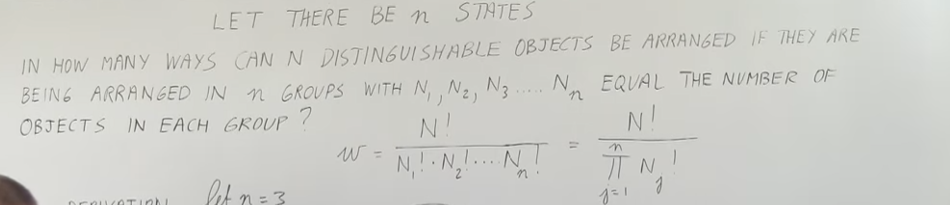 LET THERE BE n STATES
IN HOW MANY WAYS CAN N DISTINGUISHABLE OBJECTS BE ARRANGED IF THEY ARE
BEING ARRANGED IN n GROUPS WITH N₁, N₂, N₃ ..... Nₙ EQUAL THE NUMBER OF
OBJECTS IN EACH GROUP?
w = N! / (N₁! · N₂! .... Nₙ!) = N! / ∏ⁿⱼ₌₁ Nⱼ!
Let n = 3